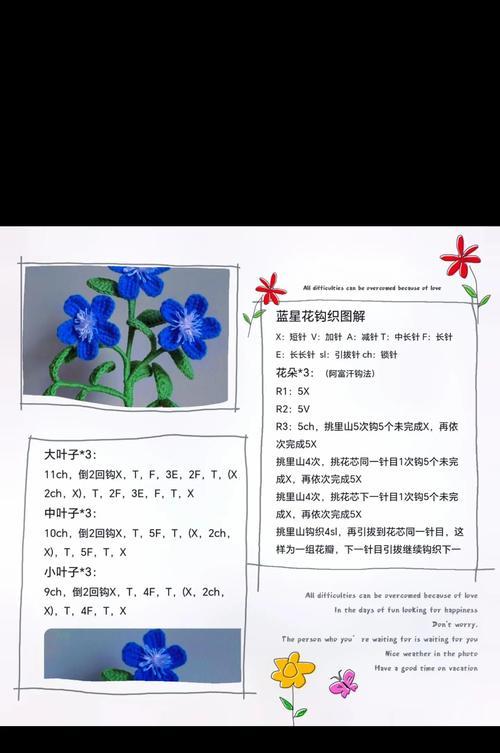 All difficulties can be overcomed because of love
蓝星花钩织图解
X：短针 V：加针 A：减针 T：中长针 F：长针
E：长长针 sl：引拔针 ch：锁针
花朵*3：（阿富汗钩法）
R1：5X
R2：5V
R3：5ch，挑里山5次钩5个未完成X，再依
次完成5X
挑里山4次，挑花芯同一针目1次钩5个未完
成X，再依次完成5X
挑里山4次，挑花芯下一针目1次钩5个未完
成X，再依次完成5X
挑里山钩织4sl，再引拔到花芯同一针目，这
样为一组花瓣，下一针目引拔继续钩织下一
大叶子*3：
11ch，倒2回钩X，T，F，3E，2F，T，(X
2ch，X)，T，2F，3E，F，T，X
中叶子*3：
10ch，倒2回钩X，T，5F，T，(X，2ch，
X)，T，5F，T，X
小叶子*3：
9ch，倒2回钩X，T，4F，T，(X，2ch，
X)，T，4F，T，X
All difficulties can be overcomed because of love
In the days of fun looking for happiness
Don't worry,
The person who you're waiting for is waiting for you
Nice weather in the photo
Have a good time on vacation